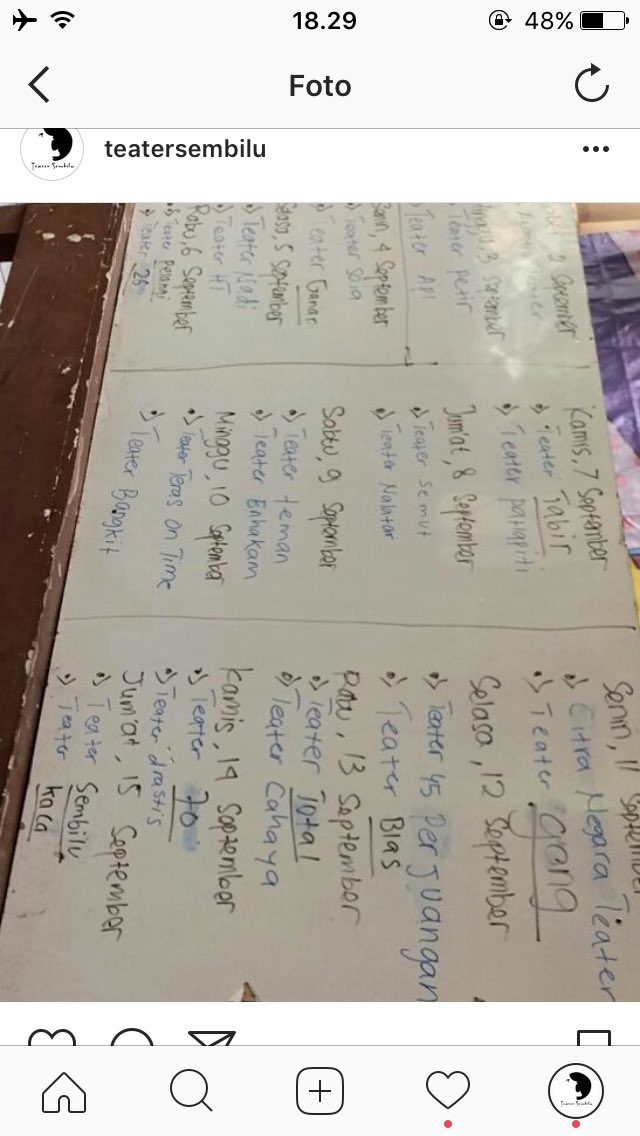 18.29
48%
Foto
teatersembilu
Teater Sembilu
September
Teater
3 September
Teater petir
Teater API
Senin, 4 September
Teater
Teater Ganar
Selasa, 5 September
Teater Nadi
Teater
Rabu, 6 September
Teater pelangi
Teater
Kamis, 7 September
Teater Tabir
Teater patapiti
Jumat, 8 September
Teater Semut
Teater Nalatar
Sabtu, 9 September
Teater teman
Teater Enhakam
Minggu, 10 September
Teater Teras On Time
Teater Bangkit
Senin, 11 September
Citra Negara Teater
Teater Grong
Selasa, 12 September
Teater 45 Perjuangan
Teater Blas
Rabu, 13 September
Teater Total
Teater Cahaya
Kamis, 14 September
Teater 70
Teater drastis
Jum'at, 15 September
Teater Sembilu
Teater kaca